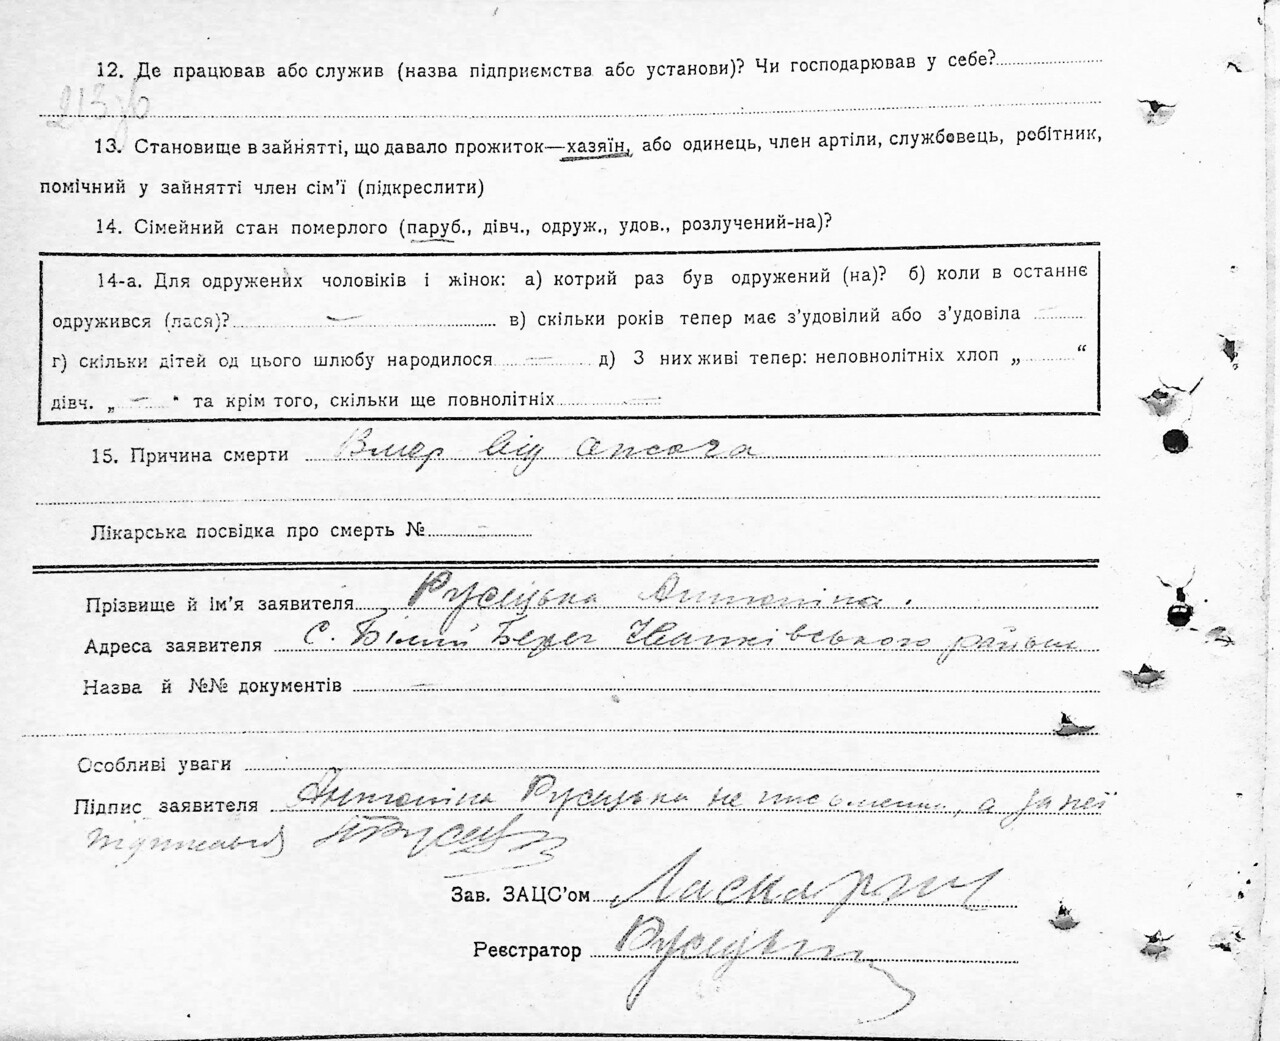 12. Де працював або служив (назва підприємства або установи)? Чи господарював у себе?
213
13. Становище в зайнятті, що давало прожиток—хазяїн, або одинець, член артіли, службовець, робітник,
помічний у зайнятті член сім’ї (підкреслити)
14. Сімейний стан померлого (паруб., дівч., одруж., удов., розлучений-на)?
14-а. Для одружених чоловіків і жінок: а) котрий раз був одружений (на)? б) коли в останнє
одружився (лася)? — в) скільки років тепер має з’удовілий або з’удовіла —
г) скільки дітей од цього шлюбу народилося — д) З них живі тепер: неповнолітніх хлоп „ — “
дівч. „ — “ та крім того, скільки ще повнолітніх —
15. Причина смерти Вмер від
Лікарська посвідка про смерть № —
Прізвище й ім’я заявителя Русецька Антоніна.
Адреса заявителя С. Білий Берег Іванківського району
Назва й №№ документів —
Особливі уваги
Підпис заявителя Антоніна Русецька не письменна, а за неї
підписався
Зав. ЗАЦС’ом Ласкарж
Реєстратор